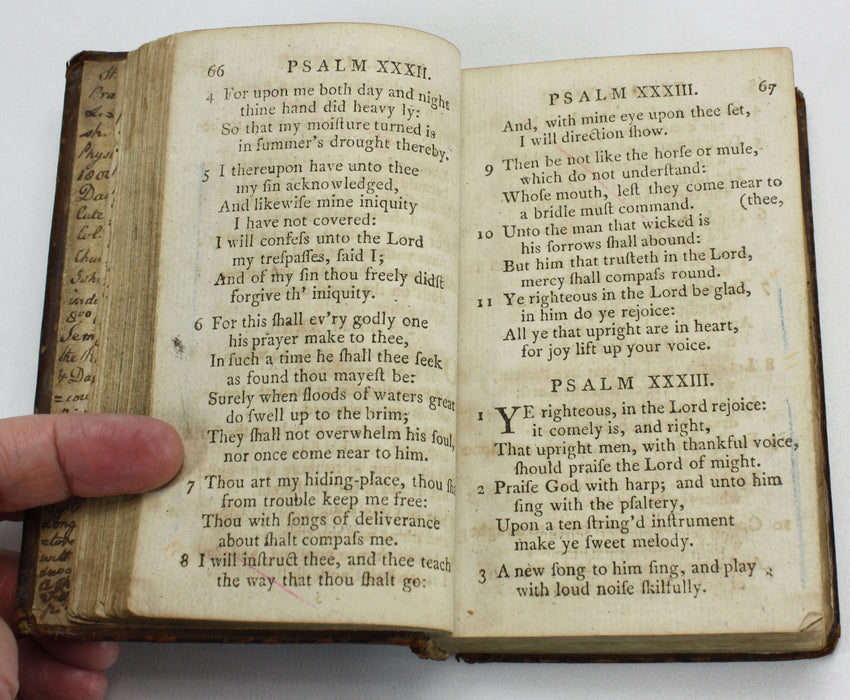 St
Pra
sh.
Physi
1800
Da
Cate
Col.
Chur
John
inde
8vo
Sem
the
Day
long
well
66 PSALM XXXII.
4 For upon me both day and night
thine hand did heavy ly:
So that my moiſture turned is
in ſummer's drought thereby.
5 I thereupon have unto thee
my ſin acknowledged,
And likewiſe mine iniquity
I have not covered:
I will confeſs unto the Lord
my treſpaſſes, ſaid I;
And of my ſin thou freely didſt
forgive th' iniquity.
6 For this ſhall ev'ry godly one
his prayer make to thee,
In ſuch a time he ſhall thee ſeek
as found thou mayeſt be:
Surely when floods of waters great
do ſwell up to the brim;
They ſhall not overwhelm his ſoul,
nor once come near to him.
7 Thou art my hiding-place, thou ſh
from trouble keep me free:
Thou with ſongs of deliverance
about ſhalt compaſs me.
8 I will inſtruct thee, and thee teach
the way that thou ſhalt go:
PSALM XXXIII. 67
And, with mine eye upon thee ſet,
I will direction ſhow.
9 Then be not like the horſe or mule,
which do not underſtand:
Whoſe mouth, leſt they come near to
a bridle muſt command. (thee,
10 Unto the man that wicked is
his ſorrows ſhall abound:
But him that truſteth in the Lord,
mercy ſhall compaſs round.
11 Ye righteous in the Lord be glad,
in him do ye rejoice:
All ye that upright are in heart,
for joy lift up your voice.
PSALM XXXIII.
1 YE righteous, in the Lord rejoice:
it comely is, and right,
That upright men, with thankful voice,
ſhould praiſe the Lord of might.
2 Praiſe God with harp; and unto him
ſing with the pſaltery,
Upon a ten ſtring'd inſtrument
make ye ſweet melody.
3 A new ſong to him ſing, and play
with loud noiſe ſkilfully.